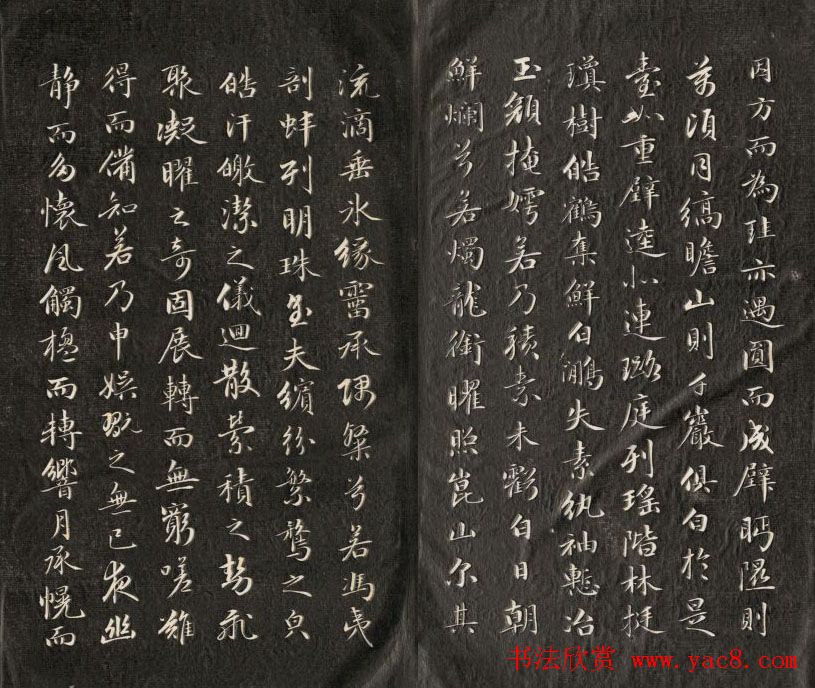 因方而為珪亦遇圓而成璧眄隰則
萬頃同縞瞻山則千巖俱白於是
臺如重璧逵似連璐庭列瑤階林挺
瓊樹皓鶴奪鮮白鷳失素紈袖慙冶
玉顏掩嫮若乃積素未虧白日朝
鮮爛兮若燭龍銜曜照崑山尔其
流滴垂氷緣霤承隅粲兮若馮夷
剖蚌列明珠至夫繽紛繁騖之皃
皓汗皦潔之儀迴散縈積之勢飛
聚凝曜之奇固展轉而無窮嗟難
得而備知若乃申娛翫之無已夜幽
静而多懷風觸楹而轉響月承幌而
书法欣赏 www.yac8.com